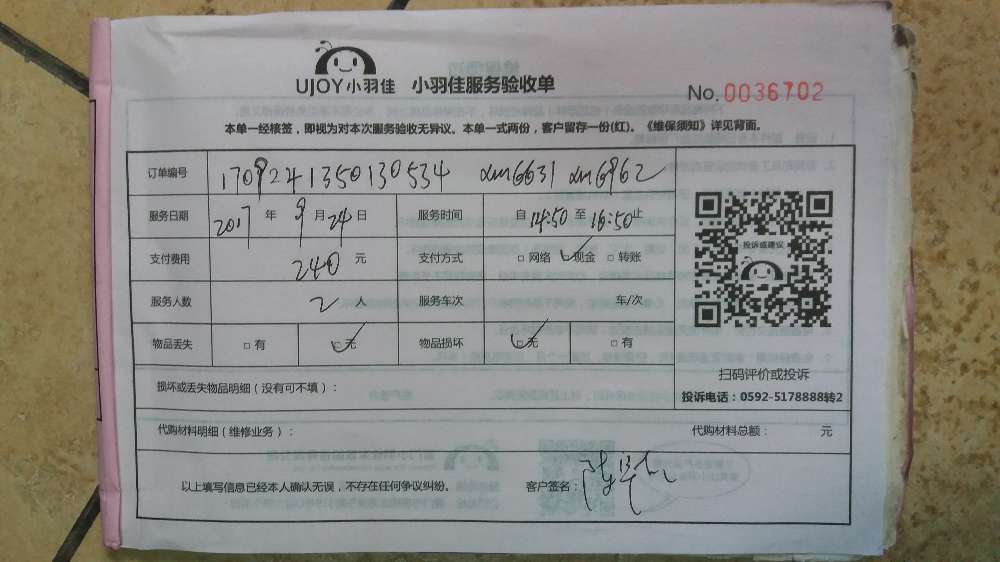 UJOY小羽佳 小羽佳服务验收单
No. 0036702
本单一经核签，即视为对本次服务验收无异议。本单一式两份，客户留存一份(红)。《维保须知》详见背面。
订单编号 1709241350130534 xm6631 xm6962
服务日期 2017 年 9 月 24 日 服务时间 自 14:50 至 16:50 止
投诉或建议
支付费用 240 元 支付方式 □ 网络 ✓现金 □ 转账
服务人数 2 人 服务车次 车/次
物品丢失 □ 有 ✓无 物品损坏 ✓无 □ 有
扫码评价或投诉
投诉电话：0592-5178888转2
损坏或丢失物品明细（没有可不填）：
代购材料明细（维修业务）： 代购材料总额： 元
以上填写信息已经本人确认无误，不存在任何争议纠纷。 客户签名：